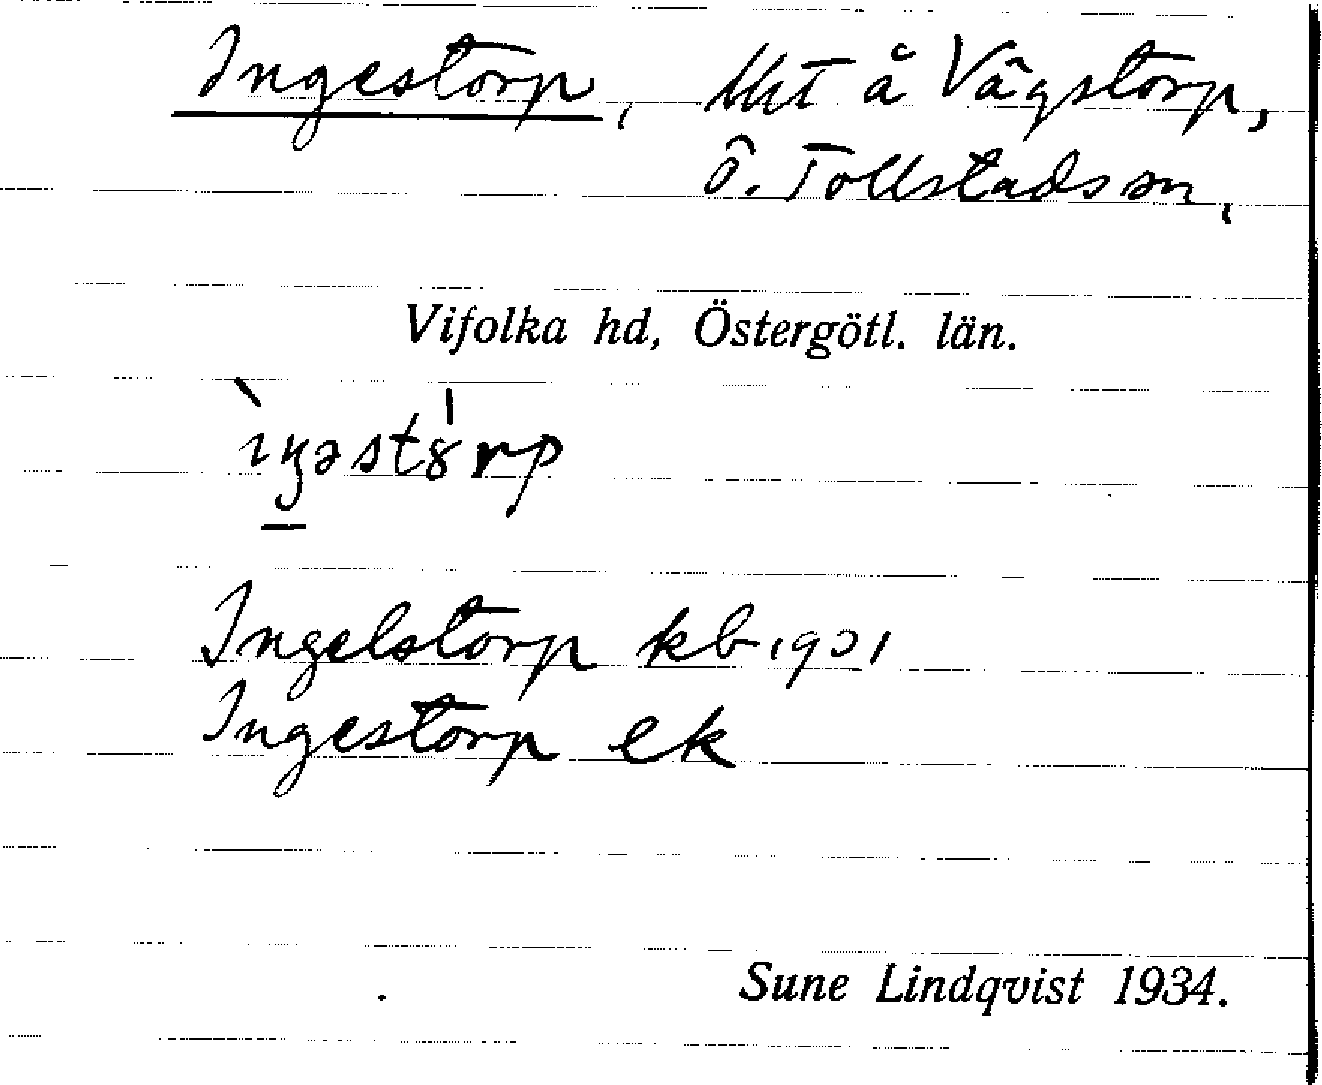 Ingestorp, tht å Vågstorp,
Ö. Tollstads sn,
Vifolka hd, Östergötl. län.
Ingelstorp kb 1901
Ingestorp ek
Sune Lindqvist 1934.